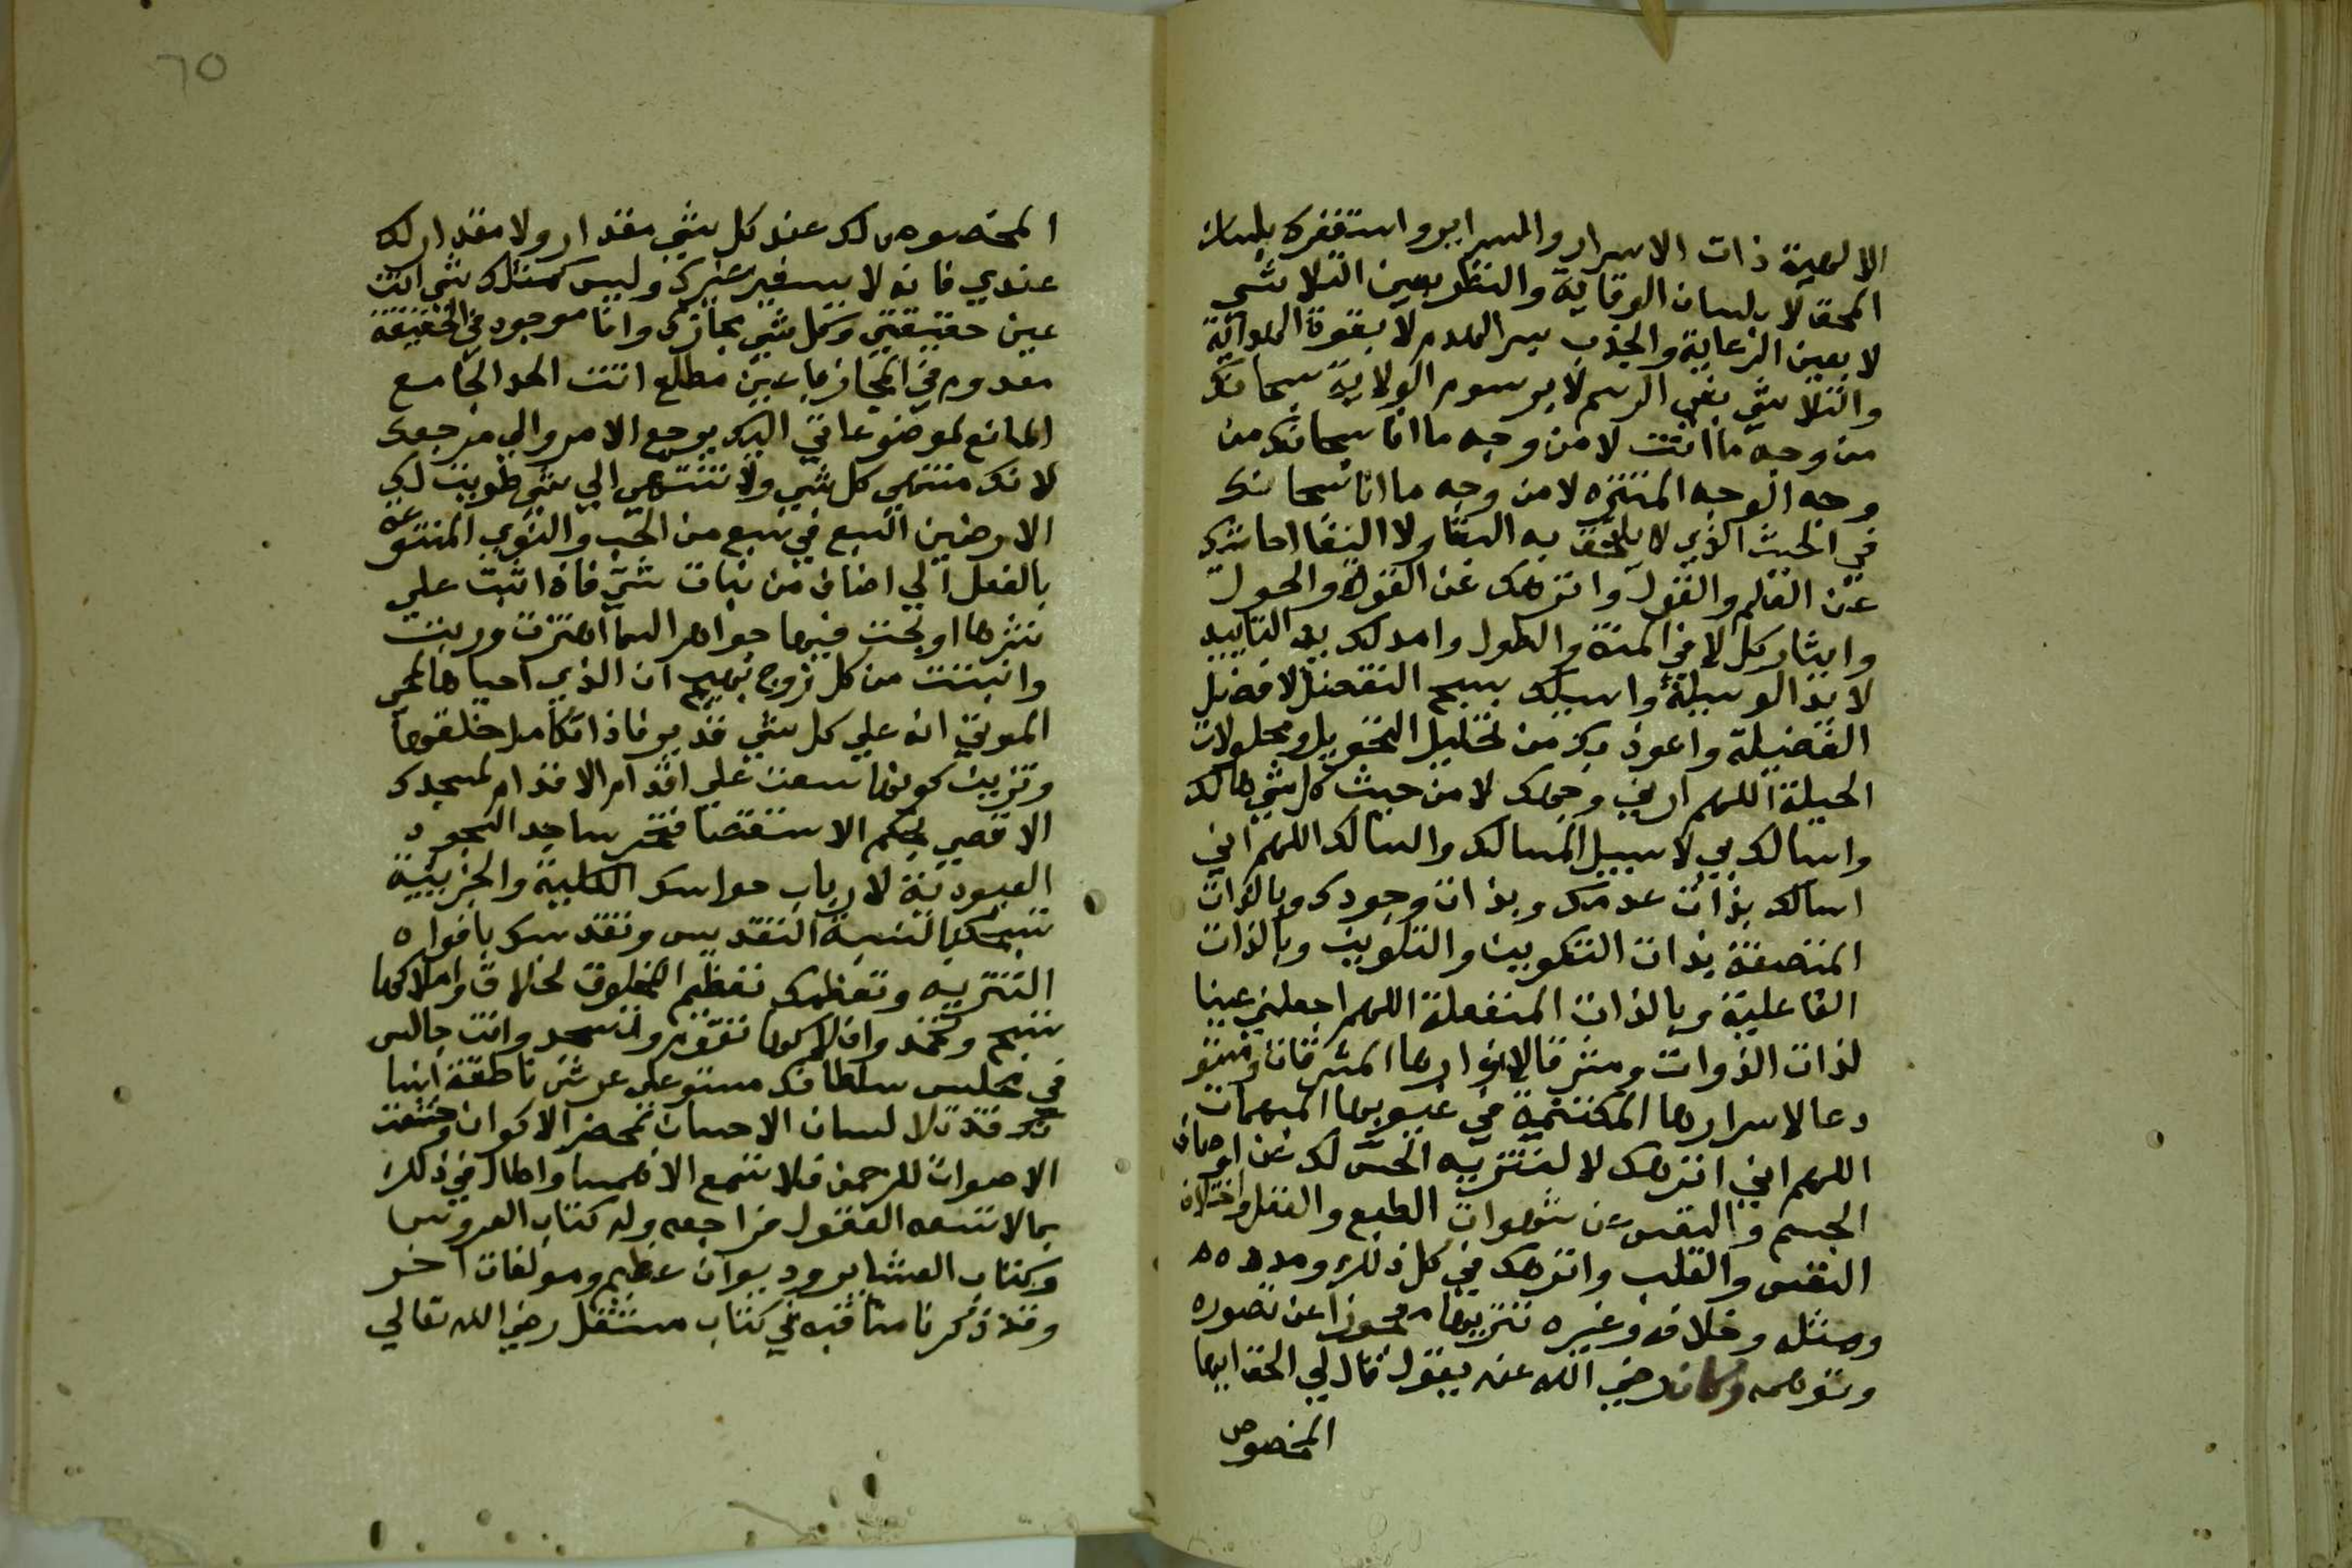 الالهية ذات الاسرار والسراير واستغفرك بلسان
المحق لا بلسان الوقاية والنظر بعين التلاشي
لا بعين الرعاية والجذب بسر العدم لا بقوة
والتلاشي بفي الرسم لا برسوم الولاية سبحانك
من وجه ما انت لا من وجه ما انا سبحانك من
وجه الوجه المنزه لا من وجه ما انا سبحانك
في الحيث الذي لا يلحق به البقا ولا الفنا احاشيك
عن القلم والقول وانزهك عن القوة والحول
وايثار كل لا في المنة والطول وامد لك يد التاييد
لا يد الوسيلة واسيلك بسبح التفضل لا فضل
الفضيلة واعوذ بك من تحليل التحويل ومحلولات
الحيلة اللهم ارني وجهك لا من حيث كل شي هالك
واسالك بي لا سبيل المسالك والسالك اللهم اني
اسالك بذات عدمك وبذات وجودك وبالذات
المتصفة بذات التكوين والتلوين وبالذات
الفاعلية وبالذات المنفعلة اللهم اجعلني عينا
لذات الذوات ومشرقا لانوارها المشرقات ومستو
دعا لاسرارها المكتتمة في غيوبها المبهمات
اللهم اني انزهك لا لتنزيه الحس لك عن اوصاف
الجسم والنفس عن شهوات الطبع والعقل واختلاف
النفس والقلب وانزهك في كل ذلك وضده
ومثله وخلافه وغيره تنزيها معجوزا عن تصوره
وتوهمه وكان رضي الله عنه يقول قال لي الحق ايها
المخصوص
٦٥
المخصوص لك عند كل شي مقدار ولا مقدار لك
عندي فانه لا يسعني غيرك وليس كمثلك شي انت
عين حقيقتي وكل شي مجازك وانا موجود في الحقيقة
معدوم في المجاز يا عين مطلع انت الحد الجامع
المانع لمصنوعاتي اليك يرجع الامر والي مرجعك
لانك منتهي كل شي ولا تنتهي الي شي طويت لك
الارضين السبع في سبع من الحب والنوي المتنوعة
بالفعل الي اصناف من نبات شتي فاذا انبت علي
نشرها اونجت فيها جواهر السما اهتزت وربت
وانبتت من كل زوج بهيج ان الذي احياها لمحي
الموتي انه علي كل شي قدير فاذا تكامل خلقها
وتزين كونها سعت علي اقدام الاقدام لمسجدك
الاقصي بحكم الاستقصا فتخر ساجد السجود
العبودية لارباب حواسك الكلية والجزيية
تسبحك بالسنة التقديس وتقدسك بافواه
التنزيه وتعظمك تعظيم المخلوق لخلاق واملاكها
تسبح وتحمد وافلاكها تقوم وتسجد وانت جالس
في مجلس سلطانك مستو علي عرش ناطقة ايها
وقد تلا لسان الاحسان بمحضر الاكوان وخشعت
الاصوات للرحمن فلا تسمع الا همسا واطال في ذلك
بما لا تسعه العقول فراجعه وله كتاب العروس
وكتاب الشاير وديوان عظيم ومولفات اخر
وقد ذكرنا مناقبه في كتاب مستقل رضي الله تعالي